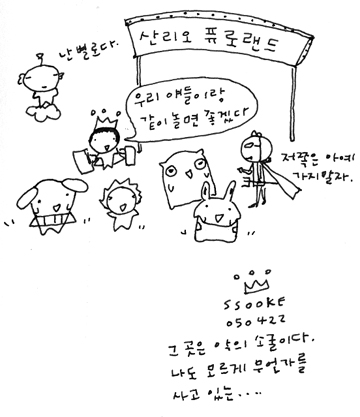 난 별루다.
산리오 퓨로랜드
우리 얘들이랑
같이 놀면 좋겠다
저쪽은 아예
가지말자.
SSOOKE
050422
그 곳은 악의 소굴이다.
나도 모르게 무언가를
사고 있는....